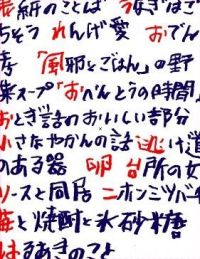 表紙のことば うなぎはごち
ちそう れんげ愛 おでん
考 「風邪とごはん」の野
菜スープ「おべんとうの時間」
おとぎ話のおいしい部分
小さなやかんの話 逃げ道
のある器 卵 台所の女
リースと同居 ニホンミツバチ
苺と焼酎と氷砂糖
はるあきのこと